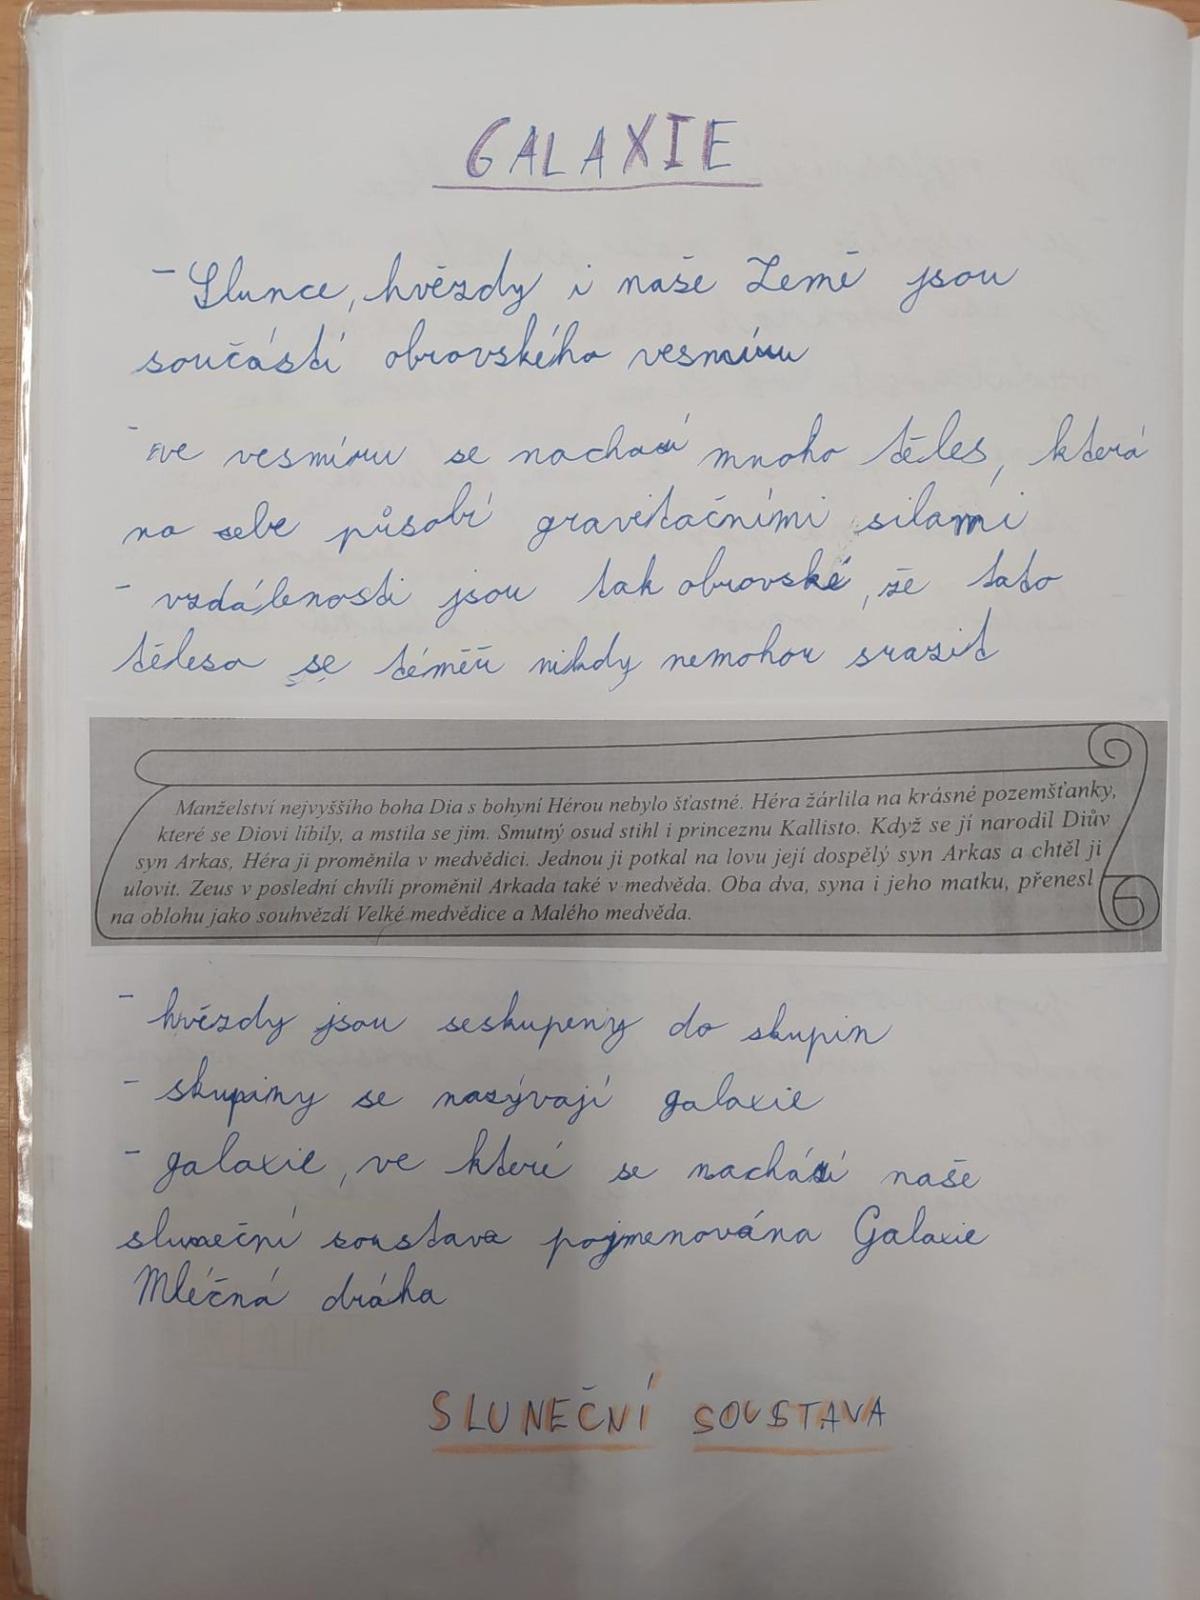 GALAXIE
- Slunce, hvězdy i naše Země jsou
součástí obrovského vesmíru
- ve vesmíru se nachází mnoho těles, která
na sebe působí gravitačními silami
- vzdálenosti jsou tak obrovské, že tato
tělesa se téměř nikdy nemohou srazit
Manželství nejvyššího boha Dia s bohyní Hérou nebylo šťastné. Héra žárlila na krásné pozemšťanky,
které se Diovi líbily, a mstila se jim. Smutný osud stihl i princeznu Kallisto. Když se jí narodil Diův
syn Arkas, Héra ji proměnila v medvědici. Jednou ji potkal na lovu její dospělý syn Arkas a chtěl ji
ulovit. Zeus v poslední chvíli proměnil Arkada také v medvěda. Oba dva, syna i jeho matku, přenesl
na oblohu jako souhvězdí Velké medvědice a Malého medvěda.
- hvězdy jsou seskupeny do skupin
- skupiny se nazývají galaxie
- galaxie, ve které se nachází naše
sluneční soustava pojmenována Galaxie
Mléčná dráha
SLUNEČNÍ SOUSTAVA